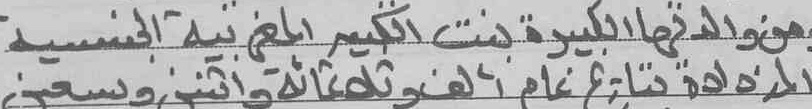 من والدتها الكبيرة بنت الكبير المغربية الجنسية
المزدادة بتاريخ عام ألف وثلاثمائة واثنين وتسعين